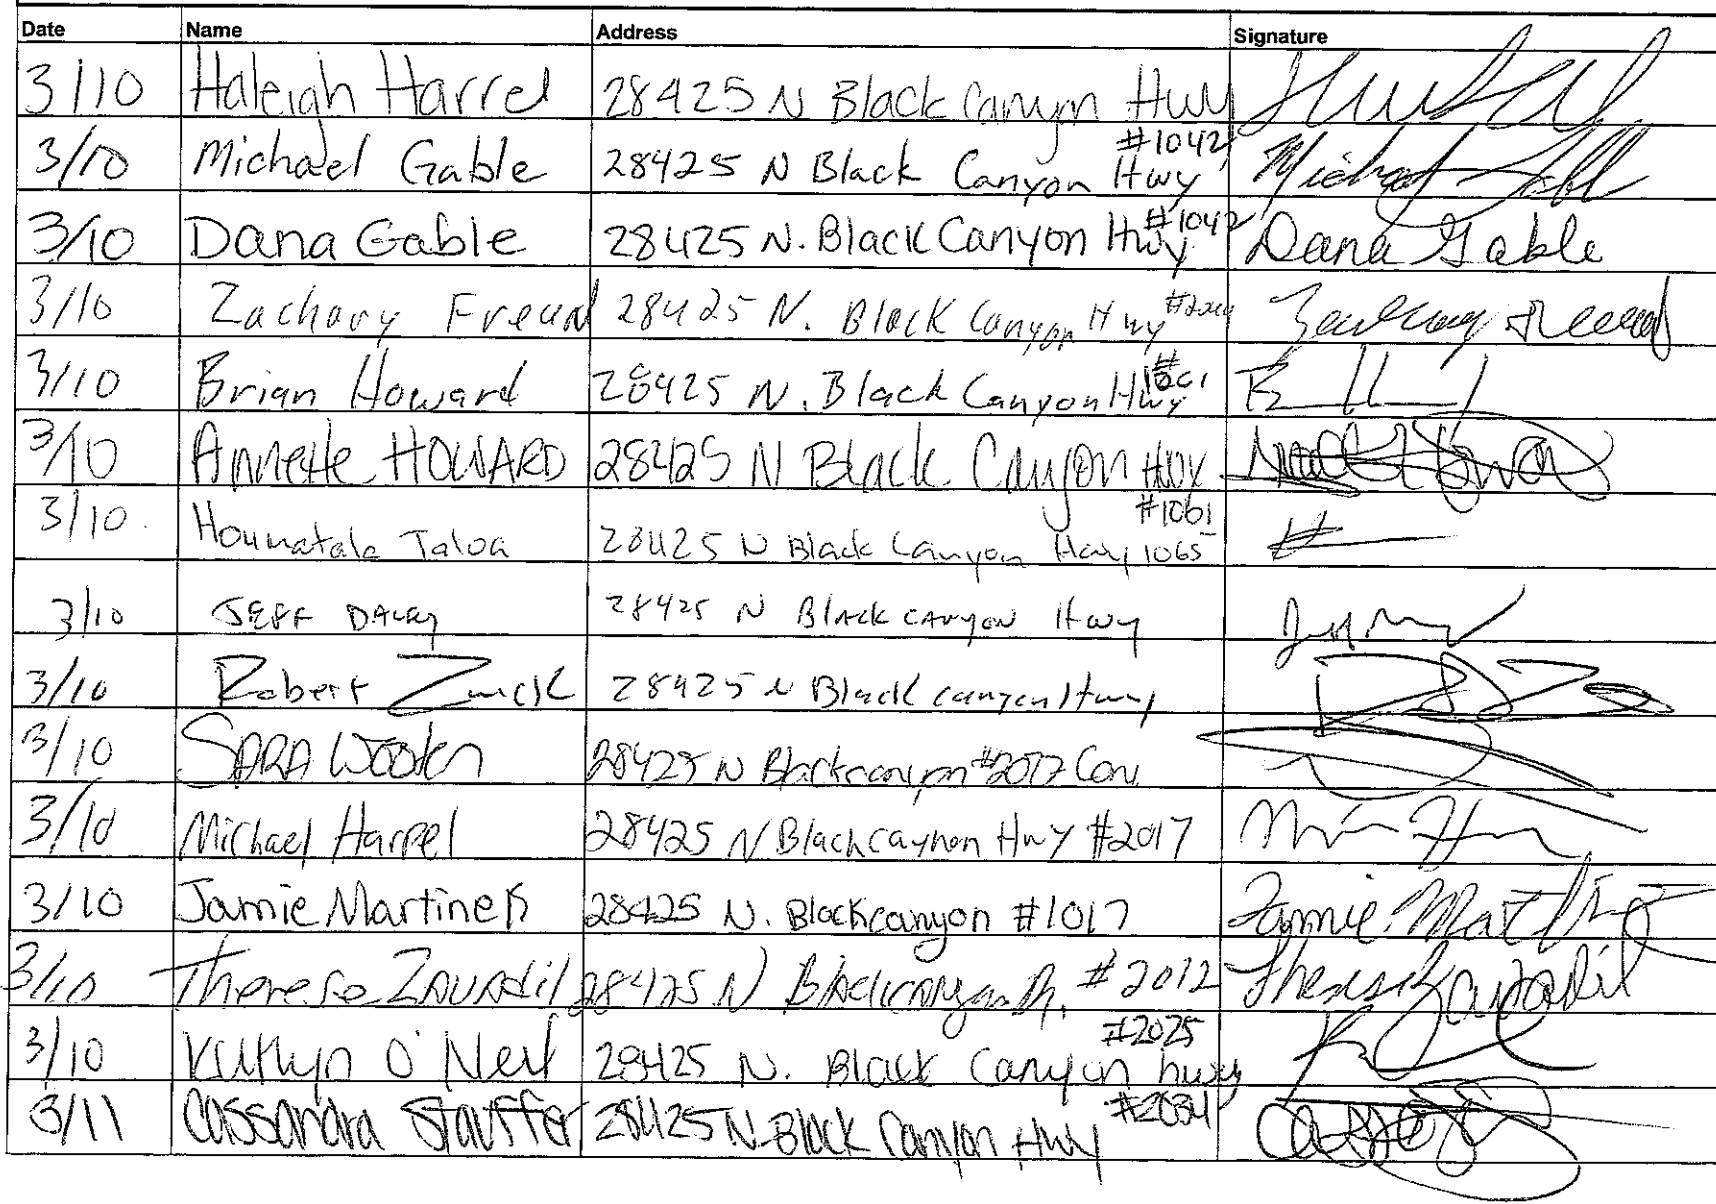 Date Name Address Signature
3/10 Haleigh Harrel 28425 N Black Canyon Hwy
3/10 Michael Gable 28425 N Black Canyon Hwy #1042 Michael Gable
3/10 Dana Gable 28425 N. Black Canyon Hwy #1042 Dana Gable
3/10 Zachary Freund 28425 N. Black Canyon Hwy Zachary Freund
3/10 Brian Howard 28425 N. Black Canyon Hwy
3/10 Annette HOWARD 28425 N Black Canyon Hwy #1061
3/10 Taloa 28425 N Black Canyon Hwy 1065
3/10 JEFF DALEY 28425 N Black Canyon Hwy
3/10 Robert 28425 N Black canyon Hwy
3/10 SARA Wooten 28425 N Blackcanyon
3/10 Michael Harrel 28425 N Blackcaynon Hwy #2017
3/10 Jamie Martinez 28425 N. Blackcanyon #1017 Jamie Martinez
3/10 Theresa Zavadil 28425 N Blackcanyon #2012 Theresa Zavadil
3/10 Kathyn O'Neil 28425 N. Black Canyon hwy #2025
3/11 Cassandra Stauffer 28425 N. Black Canyon Hwy #2034